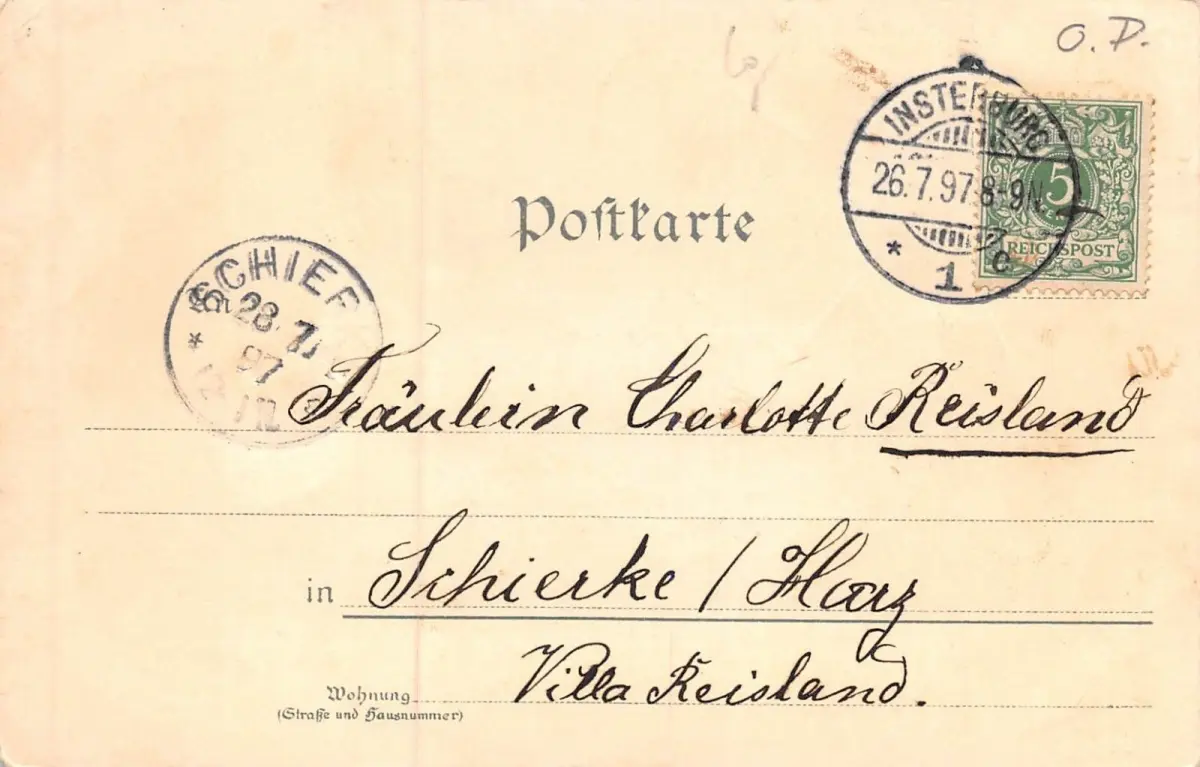 O. D.
INSTERBURG
26.7.97.8-9N.
* 1 c
5
REICHSPOST
Postkarte
SCHIE
28.7.
97
*
Fräulein Charlotte Reisland
in Schierke / Harz
Villa Reisland.
Wohnung
(Straße und Hausnummer)